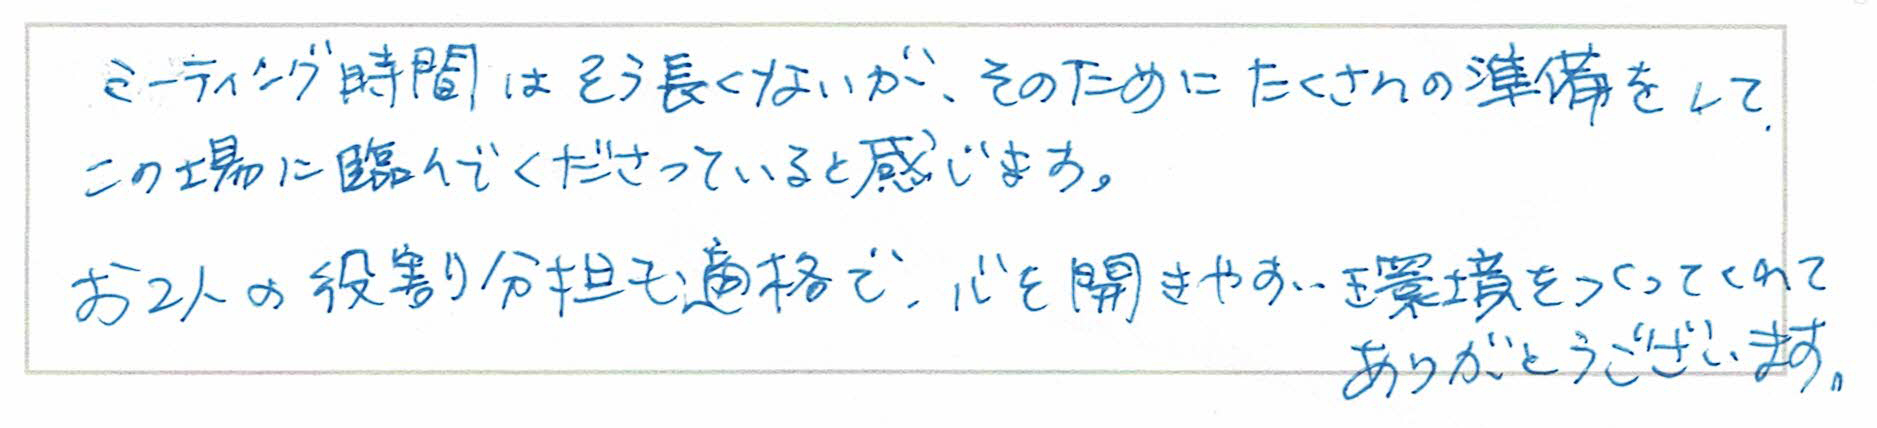 ミーティング時間はそう長くないが、そのためにたくさんの準備をして、
この場に臨んでくださっていると感じます。
お2人の役割り分担も適格で、心を開きやすい環境をつくってくれて
ありがとうございます。